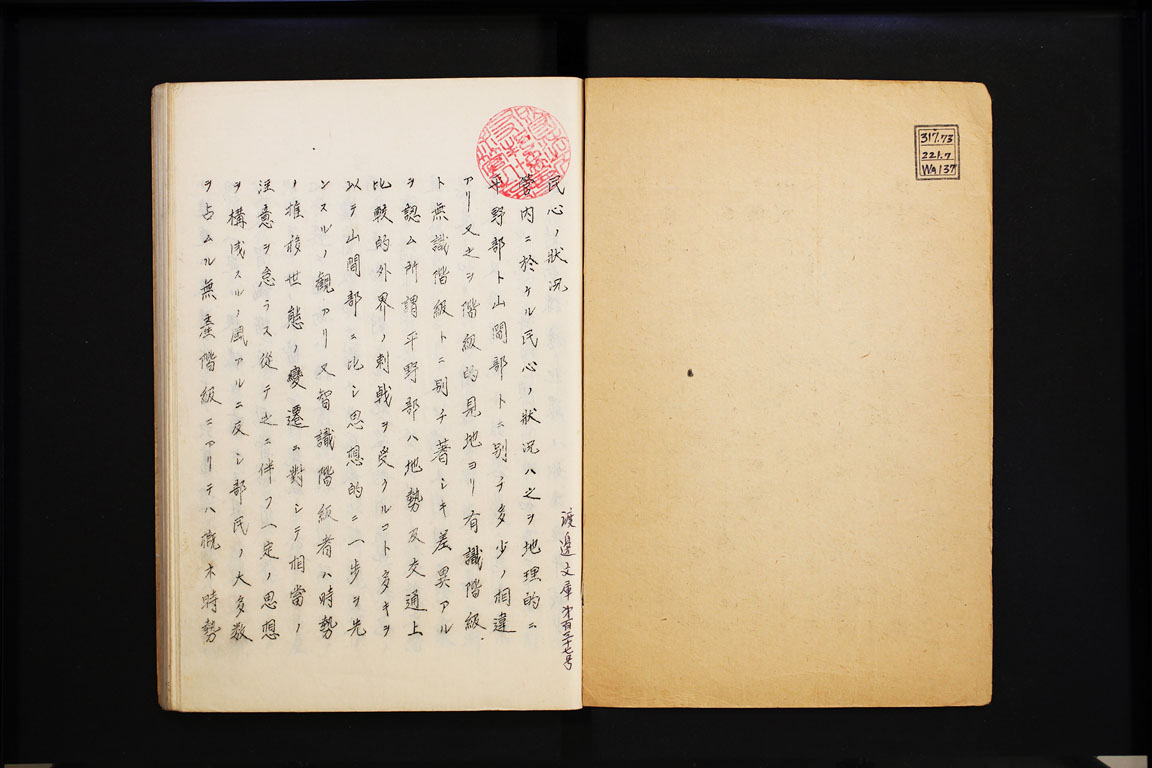 317.73
221.7
Wa137
渡邊文庫第百三十七号
民心ノ狀況
管内ニ於ケル民心ノ狀況ハ之ヲ地理的ニ
平野部ト山間部トニ別チ多少ノ相違
アリ又之ヲ階級的見地ヨリ有識階級
ト無識階級トニ別チ著シキ差異アル
ヲ認ム所謂平野部ハ地勢及交通上
比較的外界ノ刺戟ヲ受クルコト多キヲ
以テ山間部ニ比シ思想的ニ一歩ヲ先
ンスルノ観アリ又智識階級者ハ時勢
ノ推移世態ノ變遷ニ對シテ相當ノ
注意ヲ怠ラス從テ之ニ伴フ一定ノ思想
ヲ構成スルノ風アルニ反シ部民ノ大多数
ヲ占ムル無産階級ニアリテハ概木時勢